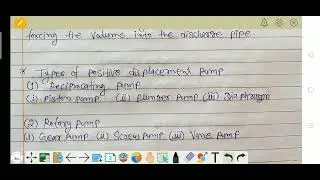 forcing the volume into the discharge pipe
* Types of positive displacement pump
(1) Reciprocating pump
(i) Piston pump (ii) Plunger pump (iii) Diaphragm
(2) Rotary pump
(i) Gear pump (ii) Screw pump (iii) Vane pump